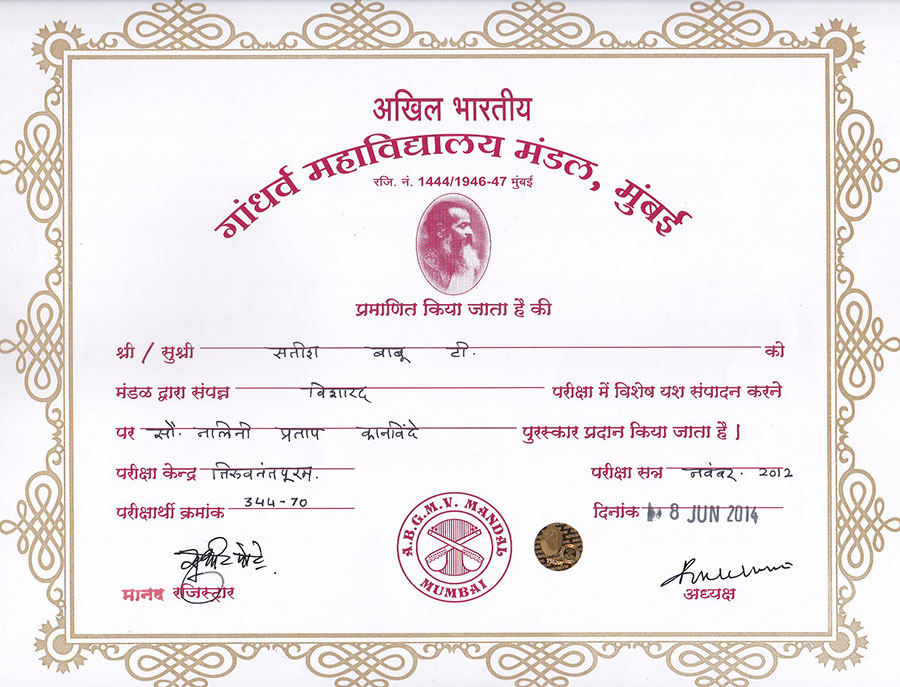 अखिल भारतीय
गांधर्व महाविद्यालय मंडल, मुंबई
रजि. नं. 1444/1946-47 मुंबई
प्रमाणित किया जाता है की
श्री / सुश्री सतीश बाबू टी. को
मंडळ द्वारा संपन्न विशारद परीक्षा में विशेष यश संपादन करने
पर सौ. नालिनी प्रताप कानविंदे पुरस्कार प्रदान किया जाता है ।
परीक्षा केन्द्र तिरुवनंतपूरम. परीक्षा सत्र नवंबर. 2012
परीक्षार्थी क्रमांक 344-70 दिनांक 8 JUN 2014
A.B.G.M.V. MANDAL
MUMBAI
मानद रजिस्ट्रार अध्यक्ष